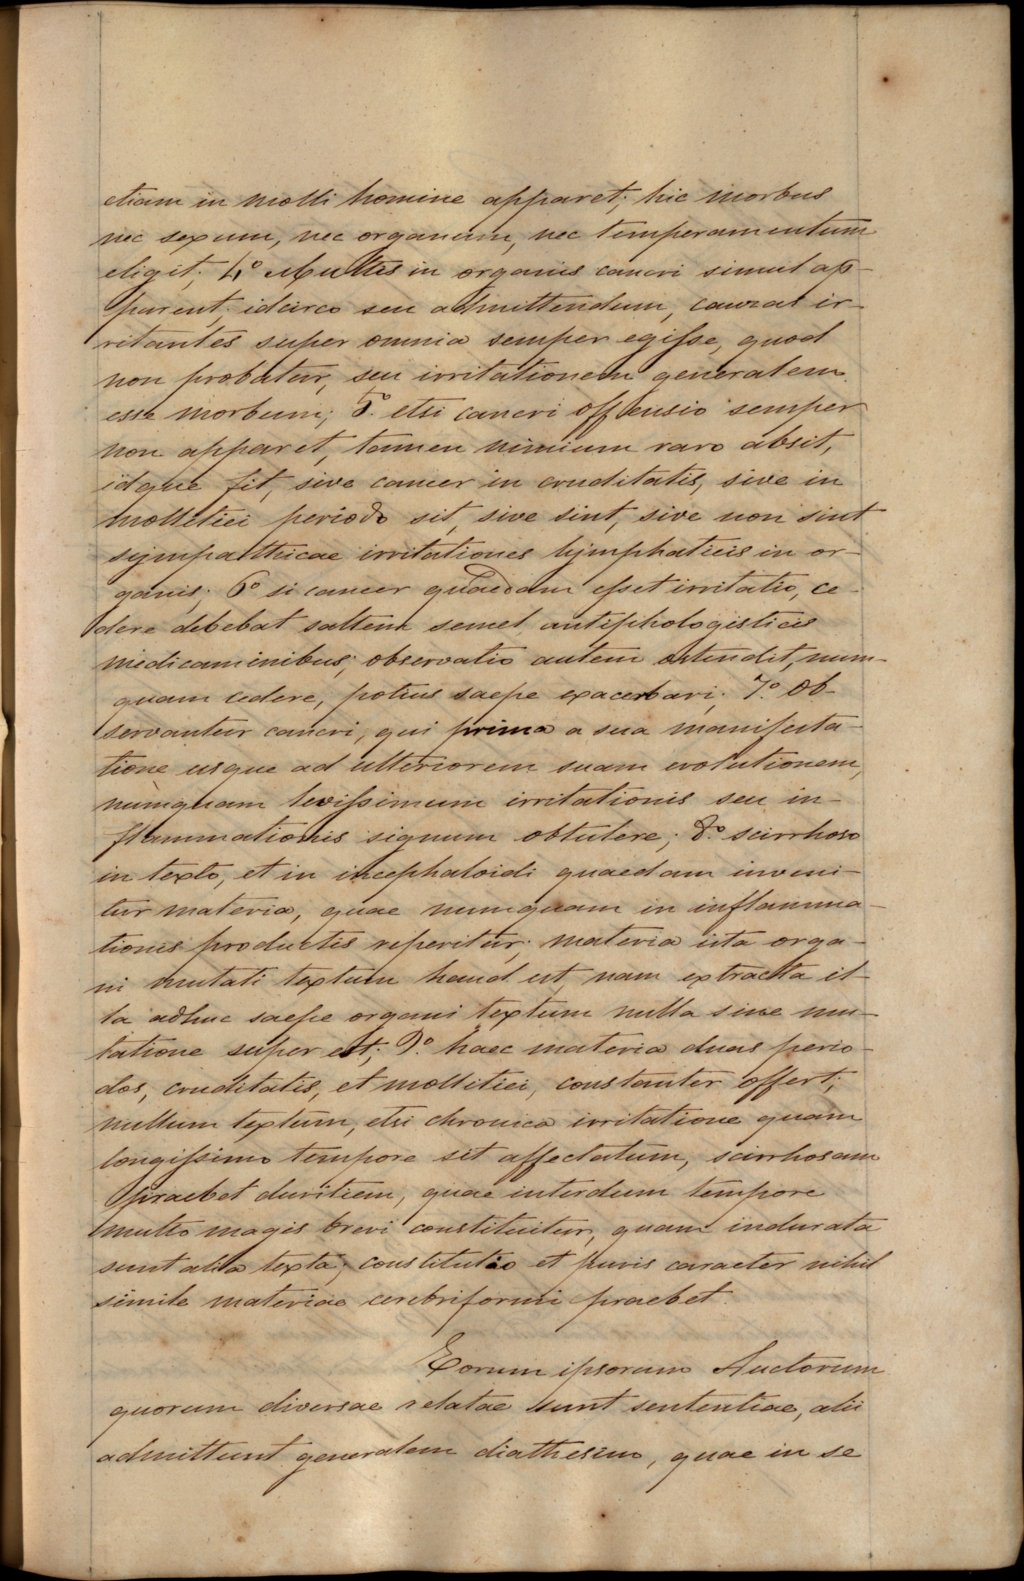 etiam in molli homine apparet; hic morbus
nec sexum, nec organum, nec temperamentum
eligit; 4.º Multis in organis cancri simul ap-
parent; idcirco seu admittendum, causas ir-
ritantes super omnia semper egisse, quod
non probatur, seu irritationem generalem
esse morbum; 5.º etsi cancri offensio semper
non apparet, tamen nimium raro absit,
idque fit, sive cancer in cruditatis, sive in
mollitiei periodo sit, sive sint, sive non sint
sympathicae irritationes lymphaticis in or-
ganis; 6º si cancer quaedam esset irritatio, ce-
dere debebat saltem semel antiphologisticis
medicaminibus; observatio autem ostendit, num-
quam cedere, potius saepe exacerbari; 7.º Ob-
servantur cancri, qui prima a sua manifesta-
tione usque ad ulteriorem suam evolutionem,
numquam levissimum irritationis seu in-
flammationis signum obtulere; 8.º scirrhoso
in texto, et in incephaloidi quaedam inveni-
tur materia, quae numquam in inflamma-
tionis productis reperitur; materia ista orga-
ni mutati textum haud est, nam extracta il-
la adhuc saepe organi textum nulla sine mu-
tatione super est; 9.º haec materia duas perio-
dos, cruditatis, et mollitiei, constanter offert;
nullum textum, etsi chronica irritatione quam
longissimo tempore sit affectatum, scirrhosam
praebet duritiem, quae interdum tempore
multo magis brevi constituitur, quam indurata
sunt alia texta; constitutio et puris caracter nihil
simile materiae cerebriformi praebet.
Eorum ipsorum Auctorum
quorum diversae relatae sunt sententiae, alii
admittunt generalem diathesim, quae in se